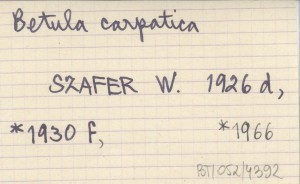 Betula carpatica
SZAFER W. 1926 d,
*1930 f, *1966
BT/052/4392